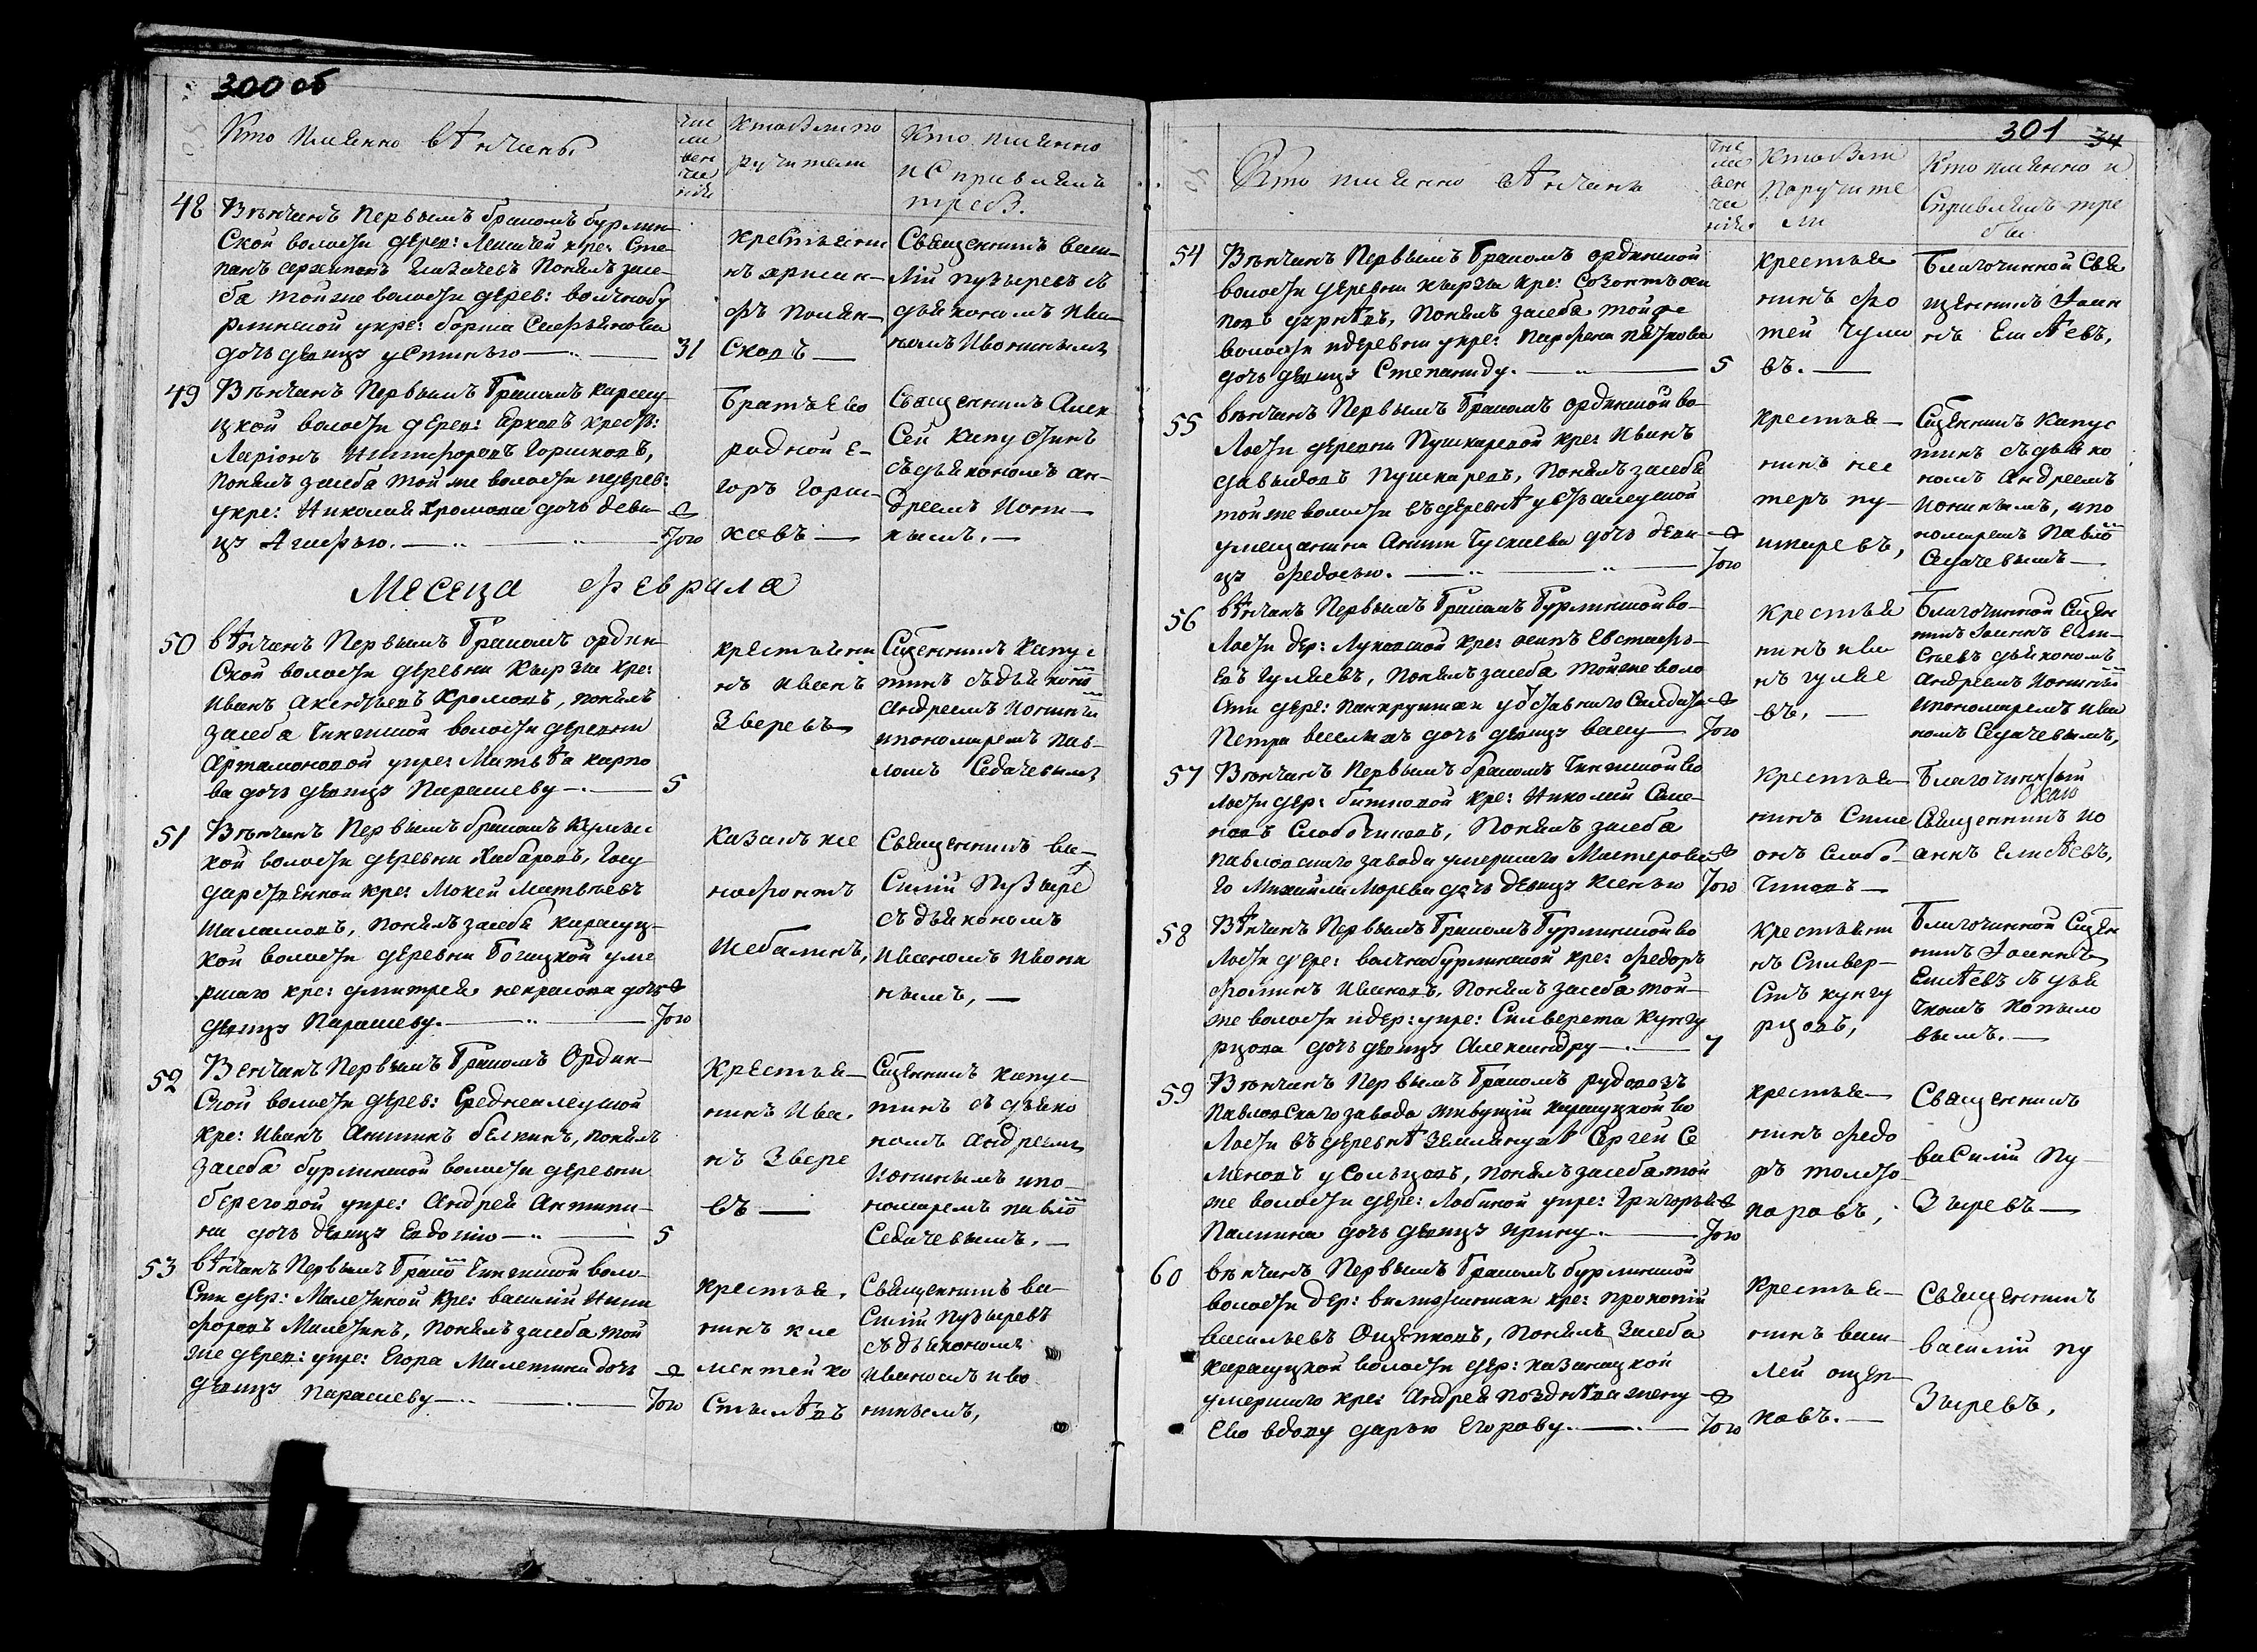 300 об
Кто имянно вѣнчаны
Кто были по
ручители
Кто имянно
исправлялъ
треб.
48 Вѣнчанъ первымъ бракомъ бурлин
ской волости дерев: кре: Сте
панъ понялъ засе
ба той же волости дерев: волчнобу
рлинской укре: бориса
дочь девицу устинью 31
крестьяни
нъ
фъ поляк
сковъ
Священникъ васи
лій пузыревъ съ
дьякономъ ива
номъ ивониным
49 Вѣнчанъ первымъ бракомъ карасу
цкой волости дерев: крест:
Ларіонъ Никифоровъ Горшковъ,
понялъ засеба той же волости и дерев:
укре: Николая Хромова дочь деви
цу Агафью. Того
братъ ево
родной е
горъ горш
ковъ
Священникъ Алек
сей капустинъ
съ дьякономъ ан
дреемъ ионин
нымъ.
Месеца февраля
50 вѣнчанъ первымъ бракомъ ордин
ской волости деревни кырзы кре:
иванъ Аксентьевъ Хромовъ, понялъ
засеба чингиской волости деревни
Артамоновой укре: Матвѣя карпо
ва дочь девицу Парасеву 5
крестьяни
нъ иванъ
Зверевъ
Сщенникъ капус
тинъ съ дьяконо
Андреемъ ионины
ипономаремъ пав
ломъ Седачевымъ
51 Вѣнчанъ первымъ бракомъ кулын
кой волости деревни Хабаровъ, госу
дарственной кре: Мокей матвѣевъ
Шаламовъ, понялъ засебя карасуц
кой волости деревни богацкой уме
ршаго кре: дмитрея некрасова дочь
девицу Парасеву. Того
казакъ ксе
нофонтъ
шебалинъ,
Священникъ ва
силій Пузыре
съ дьякономъ
иваномъ ивони
нымъ,
52 Венчанъ первымъ бракомъ Ордин
ской волости дерев: Среднеалеуской
кре: иванъ Аникинъ белкинъ, понялъ
засеба бурлинской волости деревни
береговой укре: Андрея Антипи
на дочь девицу Евдокію 5
Крестья
нинъ ива
нъ Звере
въ
Сщенникъ капус
тинъ съ дьяко
номъ андреемъ
иониным ипо
номаремъ павло
Седачевымъ.
53 вѣнчанъ первымъ брако чингиской воло
сти дер: Малетиной кре: василій Ники
форовъ Малетинъ, понялъ засеба той
же дерев: укре: Егора Малетина дочь
девицу парасеву Того
крестья
нинъ кле
ментей ко
Священникъ ва
силій пузыревъ
съ дьякономъ
иваномъ иво
нинымъ,
301 34
Кто имянно вѣнчанъ
Кто были
поручите
ли
Кто имянно и
справлялъ тре
бы
54 Вѣнчанъ первымъ бракомъ ординской
волости деревни кырзы кре: Созонтъ оси
повъ понялъ засеба той же
волости и деревни укре: Парфена пяткова
дочь девицу Степаниду. 5
крестья
нинъ фо
тей чупи
въ.
Благочинной свя
щенникъ Иоан
нъ Елисѣевъ,
55 вѣнчанъ первымъ бракомъ ординской во
лости деревни Пушкаревой кре: иванъ
давыдовъ пушкаревъ, понялъ засебя
той же волости въ деревнѣ устьалеуской
умещанина Аники чускаева дочь деви
цу федосью. Того
крестья
нинъ пе
теръ пу
шкаревъ,
Сщенникъ капус
тинъ съ дьяко
номъ Андреемъ
иониным, ипо
номаремъ павло
Седачевымъ
56 вѣнчанъ первымъ бракомъ бурлинской во
лости дер: Луковской кре: осипъ Евстафь
евъ Гуляевъ, понялъ засеба той же воло
сти дере: панкрушихи уотставнаго салдата
Петра веселкова дочь девицу вассу Того
крестья
нинъ ива
нъ гуляе
въ,
Благочинной Сщен
никъ Иоаннъ Ели
сѣевъ дьякономъ
андреемъ иониным
ипономаремъ ива
номъ Седачевымъ,
57 Вѣнчанъ первымъ бракомъ чингиской во
лости дер: битковой кре: Николай Семе
новъ Слободчиковъ, понялъ засеба
павловскаго завода умершаго Мастерова
го Михайла Морева дочь девицу Ксенью Того
крестья
нинъ Симе
онъ Слобо
чиковъ
Благочинный
Священникъ ио
аннъ Елисѣевъ,
58 Вѣнчанъ первымъ бракомъ бурлинской во
лости дере: волчнобурлинской кре: федоръ
фоминъ Ивановъ, понялъ засеба той
же волости и дер: укре: Силверста кунгу
рцова дочь девицу Александру 7
крестьяни
нъ Силвер
стъ кунгу
рцовъ,
Благочинной Сщен
никъ Иоаннъ
Елисѣевъ съ дья
чкомъ копыло
вымъ.
59 Вѣнчанъ первымъ бракомъ рудовозъ
павловскаго завода живущій карасуцкой во
лости въ деревнѣ Землянухѣ Сергей Се
меновъ усольцовъ, понялъ засеба той
же волости дере: Лобиной укре: Григорья
Паликина дочь девицу ирину. Того
крестья
нинъ федо
ръ толсто
паровъ,
Священникъ
василій пу
зыревъ
60 вѣнчанъ первымъ бракомъ бурлинской
волости дер: кре: прокопій
васильевъ Ощепковъ, понялъ засеба
карасуцкой волости дер: казанацкой
умершаго кре: Андрея позднѣва жену
Ево вдову дарью Егорову. Того
крестья
нинъ васи
лей ощеп
ковъ.
Священникъ
василій пу
зыревъ,